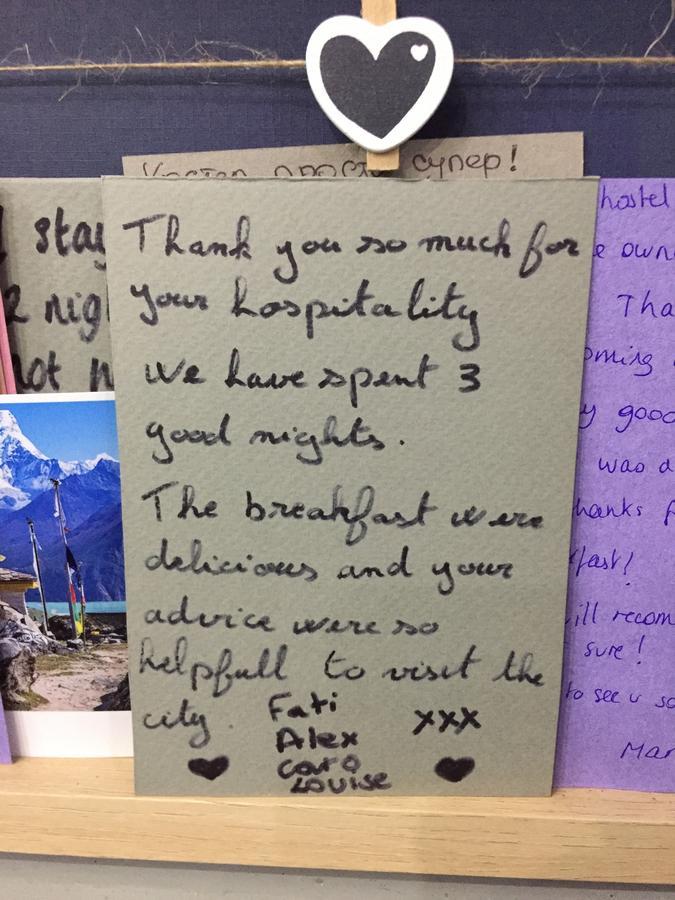 просто супер!
stay
2 nig
not
Thank you so much for
your hospitality
we have spent 3
good nights.
The breakfast were
delicious and your
advice were so
helpfull to visit the
city.
Fati
Alex
Caro
Louise
xxx
hostel
e own
Tha
oming
y good
was a
hanks f
fast!
ill recom
sure!
to see u so
Mar